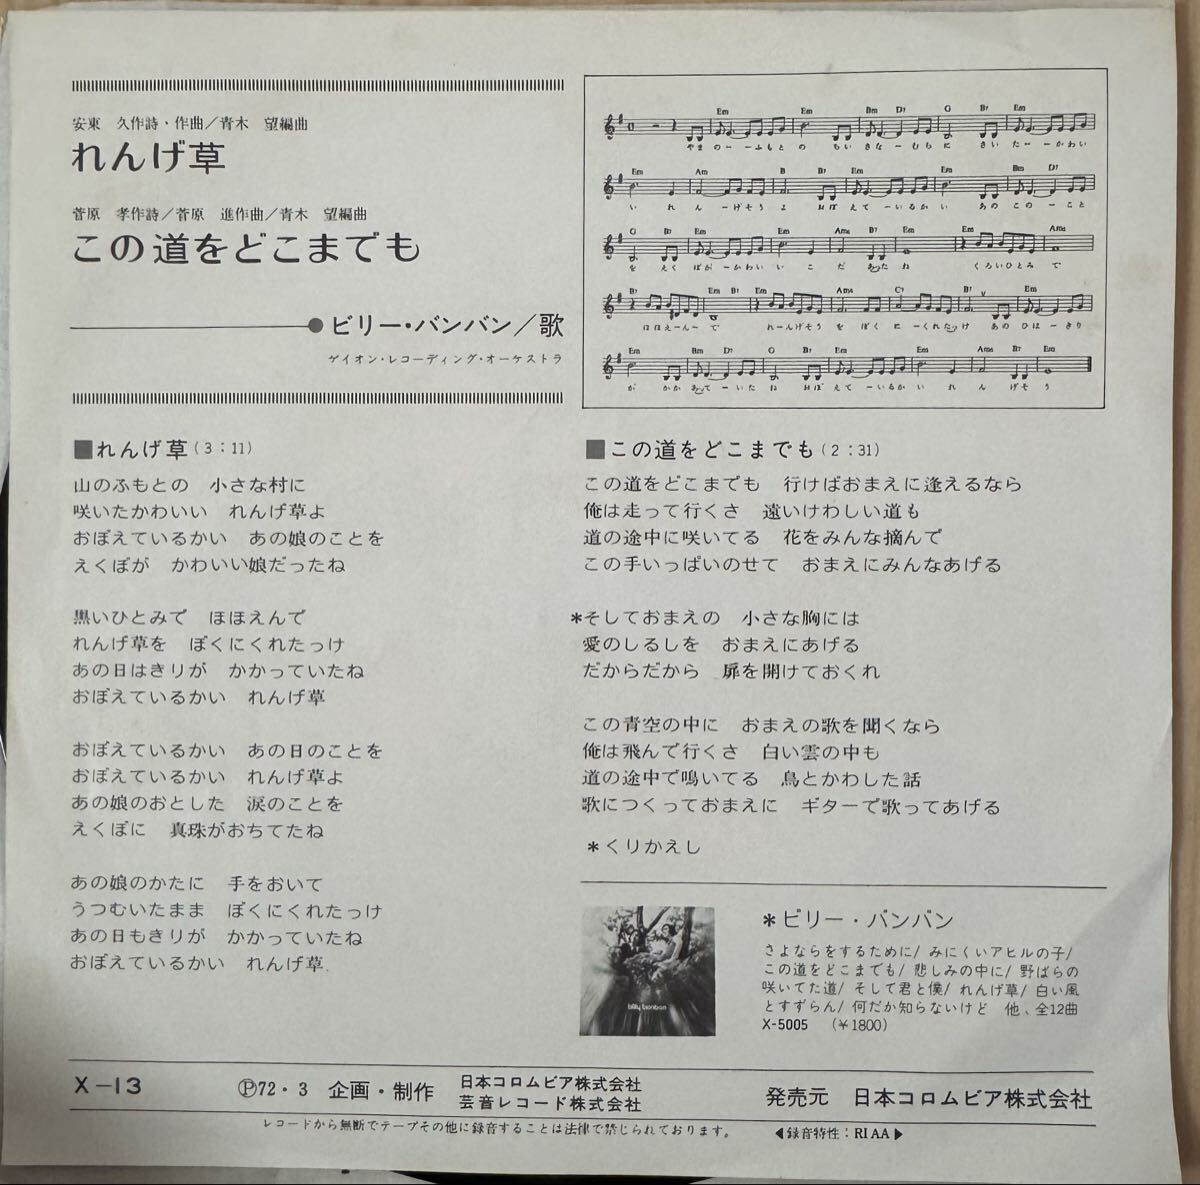 安東 久作詩・作曲／青木 望編曲
れんげ草
菅原 孝作詩／菅原 進作曲／青木 望編曲
この道をどこまでも
●ビリー・バンバン／歌
ゲイオン・レコーディング・オーケストラ
Em Em Bm D7 G B7 Em
やまのーーふもとの ちいさなーむらに さいたーーかわい
Em Am B B7 Em Em Bm D7
いれんーげそうよ おぼえてーいるかい あのこのーこと
G B7 Em Em Am6 B7 Em Em Am6
をえくぼがーかわいいこだあったね くろいひとみで
B7 Em B7 Em Am6 C7 B7 Em
ほほえーんーで れーんげそうをぼくにーくれたっけ あのひはーきり
Em Bm D7 G B7 Em Em Am6 B7 Em
がかかあってーいたね おぼえてーいるかいれんげそう
■れんげ草(3:11)
山のふもとの 小さな村に
咲いたかわいい れんげ草よ
おぼえているかい あの娘のことを
えくぼが かわいい娘だったね
黒いひとみで ほほえんで
れんげ草を ぼくにくれたっけ
あの日はきりが かかっていたね
おぼえているかい れんげ草
おぼえているかい あの日のことを
おぼえているかい れんげ草よ
あの娘のおとした 涙のことを
えくぼに 真珠がおちてたね
あの娘のかたに 手をおいて
うつむいたまま ぼくにくれたっけ
あの日もきりが かかっていたね
おぼえているかい れんげ草
■この道をどこまでも(2:31)
この道をどこまでも 行けばおまえに逢えるなら
俺は走って行くさ 遠いけわしい道も
道の途中に咲いてる 花をみんな摘んで
この手いっぱいのせて おまえにみんなあげる
＊そしておまえの 小さな胸には
愛のしるしを おまえにあげる
だからだから 扉を開けておくれ
この青空の中に おまえの歌を聞くなら
俺は飛んで行くさ 白い雲の中も
道の途中で鳴いてる 鳥とかわした話
歌につくっておまえに ギターで歌ってあげる
＊くりかえし
billy banban
＊ビリー・バンバン
さよならをするために/ みにくいアヒルの子/
この道をどこまでも/ 悲しみの中に/ 野ばらの
咲いてた道/ そして君と僕/ れんげ草/ 白い風
とすずらん/ 何だか知らないけど 他、全12曲
X-5005 (￥1800)
X-13
Ⓟ72・3 企画・制作 日本コロムビア株式会社
芸音レコード株式会社
発売元 日本コロムビア株式会社
レコードから無断でテープその他に録音することは法律で禁じられております。
◀録音特性：RIAA▶